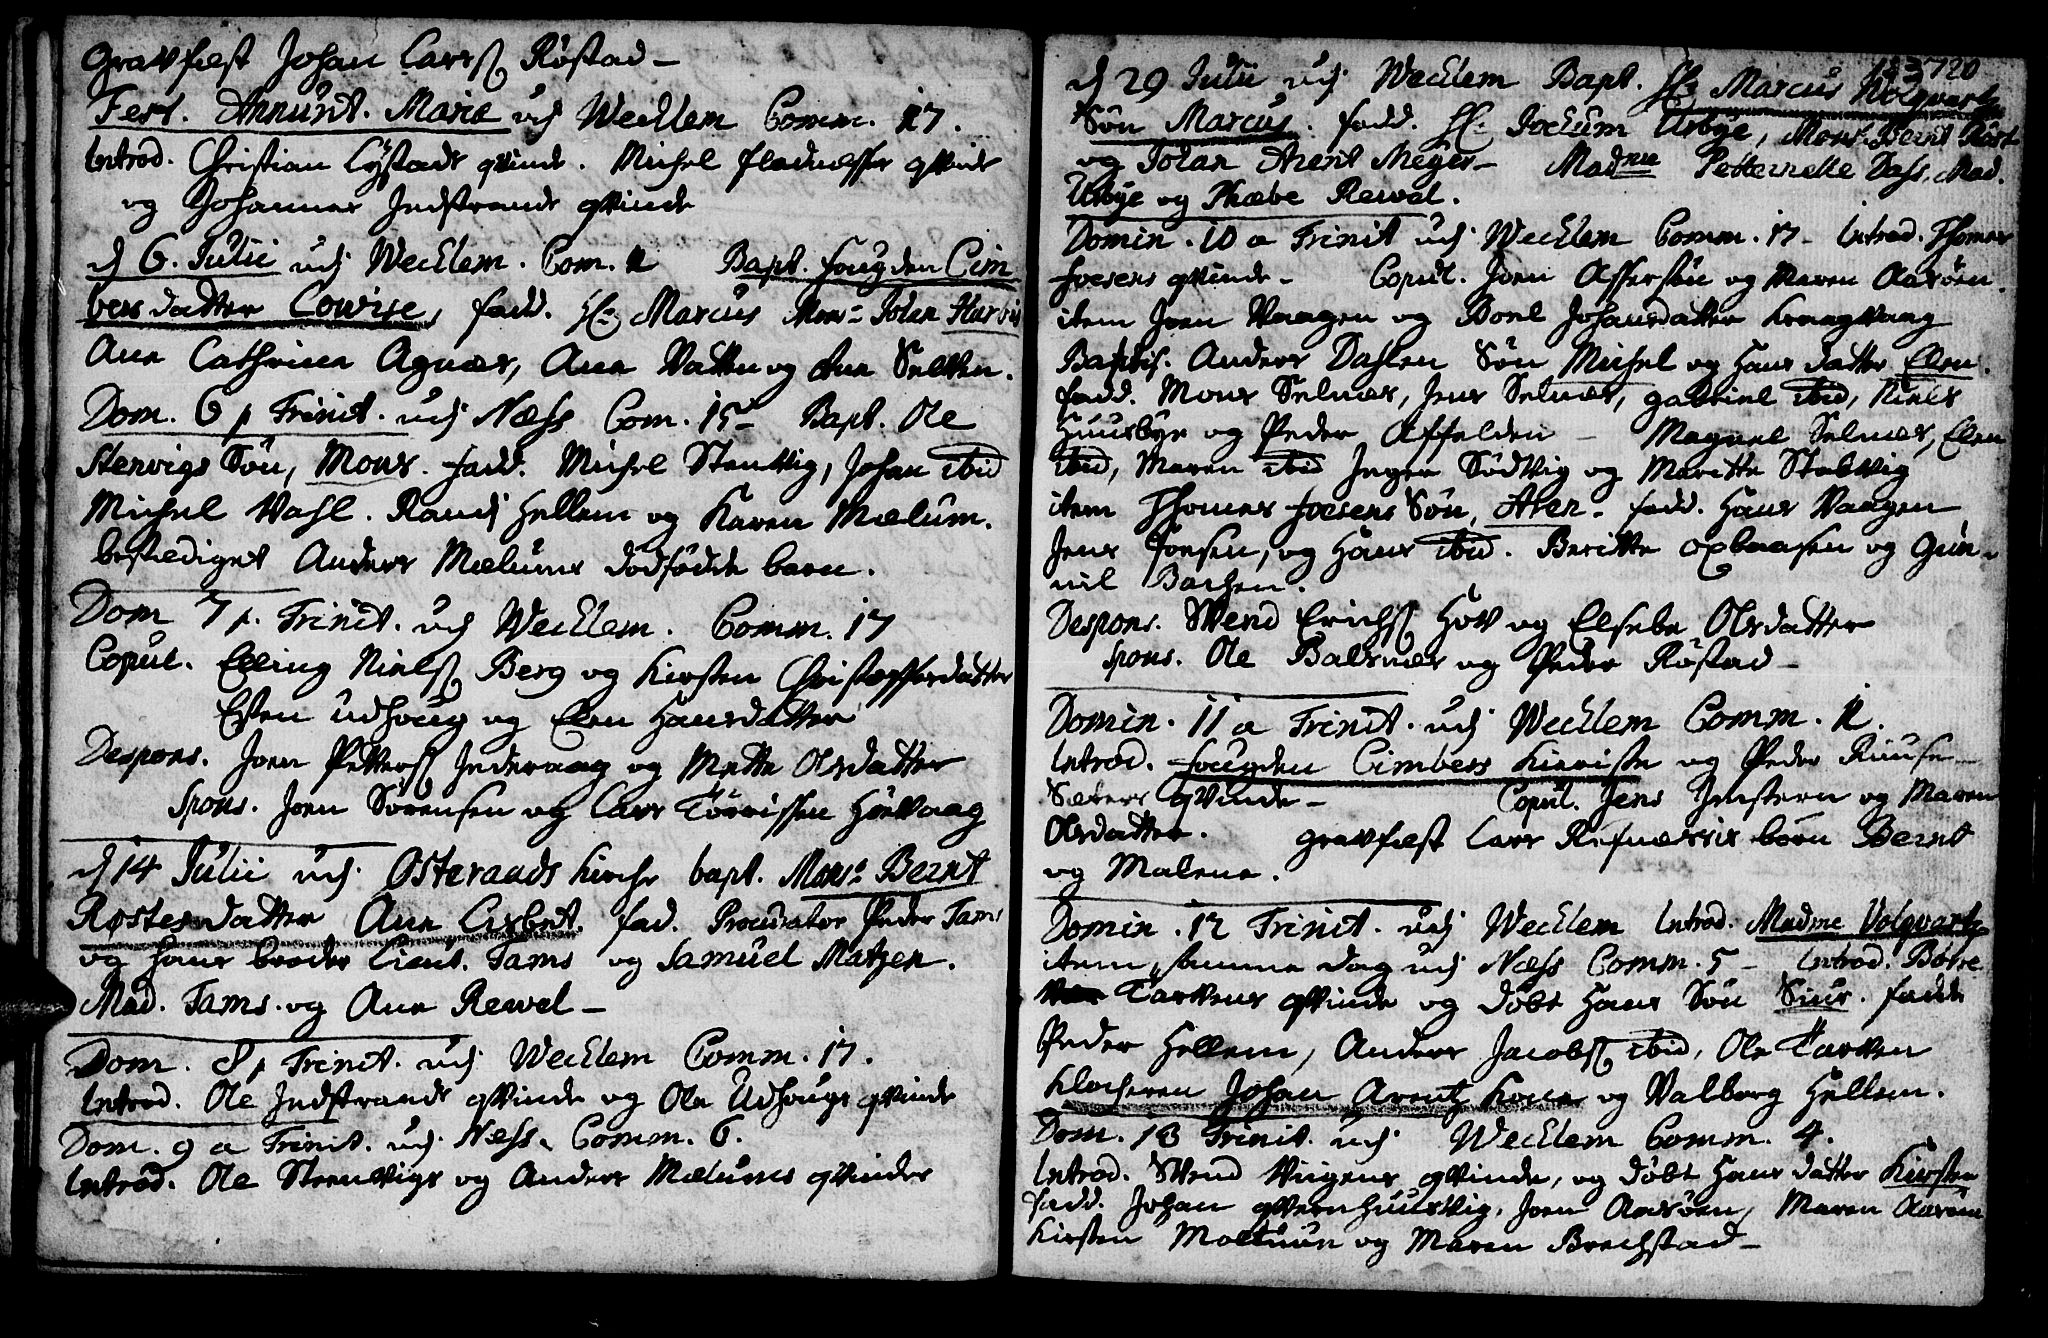 Gravfæst Johan Larsß Røstad –
Fest. Annunt. Mariæ udj Wecklem Comm. 17.
Introd. Christian Lystads qvinde. Michel Fladnesses qvinde
og Johannes Indstrands qvinde
d 6. Julii udj Wecklem. Com. 12 Bapt. fougden Cim
bers datter Lowise, fadd. Hr. Marcus Mons. Johan
Ane Cathrina Agnær, Ane Vatten og Ane Selven.
Dom. 6 p Trinit. udj Næss Com. 15 – Bapt. Ole
Stenvigs Søn, Mons. fadd. Michel Stenvig, Johan ibid
Michel Vahl. Randj Hellem og Karen Mælum.
bestediget Anders Mælums dødfødde barn.
Dom 7 p. Trinit. udj Wecklem. Comm. 17
Copul. Elling Nielsß Berg og Kirsten Christopfersdatter
Esten Udhoug og Elen Hansdatter
Despons. Joen Pettersß Inderaag og Mette Olsdatter
spons. Joen Sørensen og Lars Tørrissen Hørvaag
d 14 Julii udj Østeraads Kirche bapt. Mons. Bernt
Røstes datter Ane Lisbet. fad. Procurator Peder Tams
og hans broder Lieut. Tams og Samuel Matzen.
Mad. Tams. og Ane Rewel –
Dom. 8 p Trinit. udj Wecklem Comm. 17.
Introd. Ole Indstrands qvinde og Ole Udhougs qvinde
Dom. 9 a Trinit. udj Næss. Comm. 6.
Introd. Ole Steenvigs og Anders Mælums qvinder
1720
d 29 Julii udj Wecklem Bapt. Hr. Marcus Volqvartz
Søn Marcus. fadd. Hr. Jochum Usbye, Mons. Bernt Røst
og Johan Arent Meyer – Madme Petternelle Dass, Mad.
Usbye og Phæbe Rewel.
Domin. 10 a Trinit udj Wecklem Comm. 17 – Introd. Thomas
Joesens qvinde – Copul. Joen Assersøn og Maren Aasøen.
item Joen Vaagen og Boel Johansdatter Kraagvaag
Baptis. Anders Dahlen Søn Michel og Hans datter Elen.
fadd. Mons Selnær, Jens Selnær, gabriel ibid, Niels
Huusbye og Peder Offelden – Magnel Selnær, Elen
ibid, Maren ibid Inger Sødvig og Maritte Stalvig
item Thomas Joesens Søn, Aten. fadd. Hans Vaagen
Jens Joesen, og Hans ibid. Beritte Oxbaasen og Gun-
nil Bachen.
Despons. Svend Erichsß Hov og Elsebe Olsdatter
spons. Ole Balsnær og Peder Røstad –
Domin. 11 a Trinit. udj Wecklem Comm. 12.
Introd. fougden Cimbers Kieriste og Peder Ruuse-
Sæters qvinde – Copul. Jens Imstern og Maren
Olsdatter. gravfæst Lars Refnæssis børn Bernt
og Malene.
Domin. 12 Trinit. udj Wecklem Introd. Madme Volqvartz
item samme dag udj Næss Comm. 5 – Introd.
Tarvens qvinde og døbt Hans Søn Siur. fadde
Peder Hellem, Anders Jacobsß ibid, Ole Tarven
Klocheren Johan Arentz Kone og Valborg Hellem.
Dom. 13 Trinit. udj Wecklem Comm. 4.
Introd. Svend Viigens qvinde, og døbt Hans datter Kirsten
fadd. Johan qvernhuusvig, Joen Aasøen, Maren Aasøen
Kirsten Moltuun og Maren Brechstad –